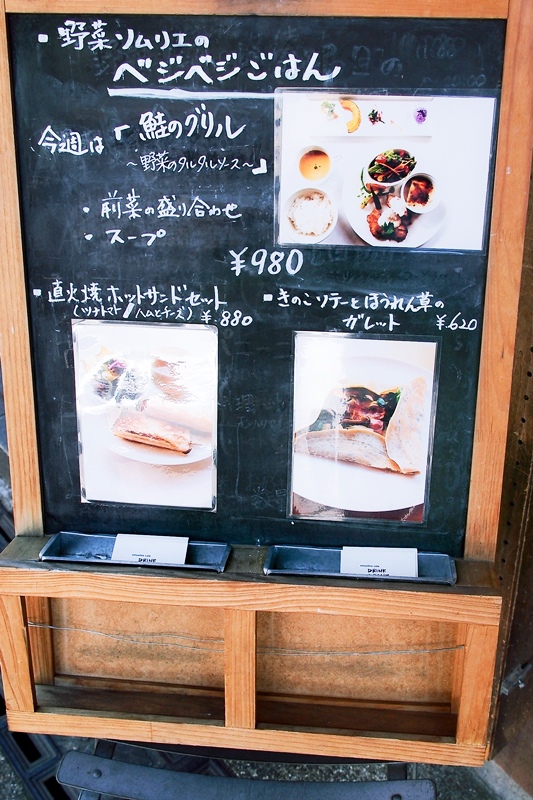 ▪ 野菜ソムリエの
ベジベジごはん
今週は「鮭のグリル
〜野菜のタルタルソース〜」
・前菜の盛り合わせ
・スープ
¥980
▪ 直火焼ホットサンドセット
(ツナトマト/ハムとチーズ) ¥880
▪ きのこソテーとほうれん草の
ガレット ¥620
DRINK
DRINK